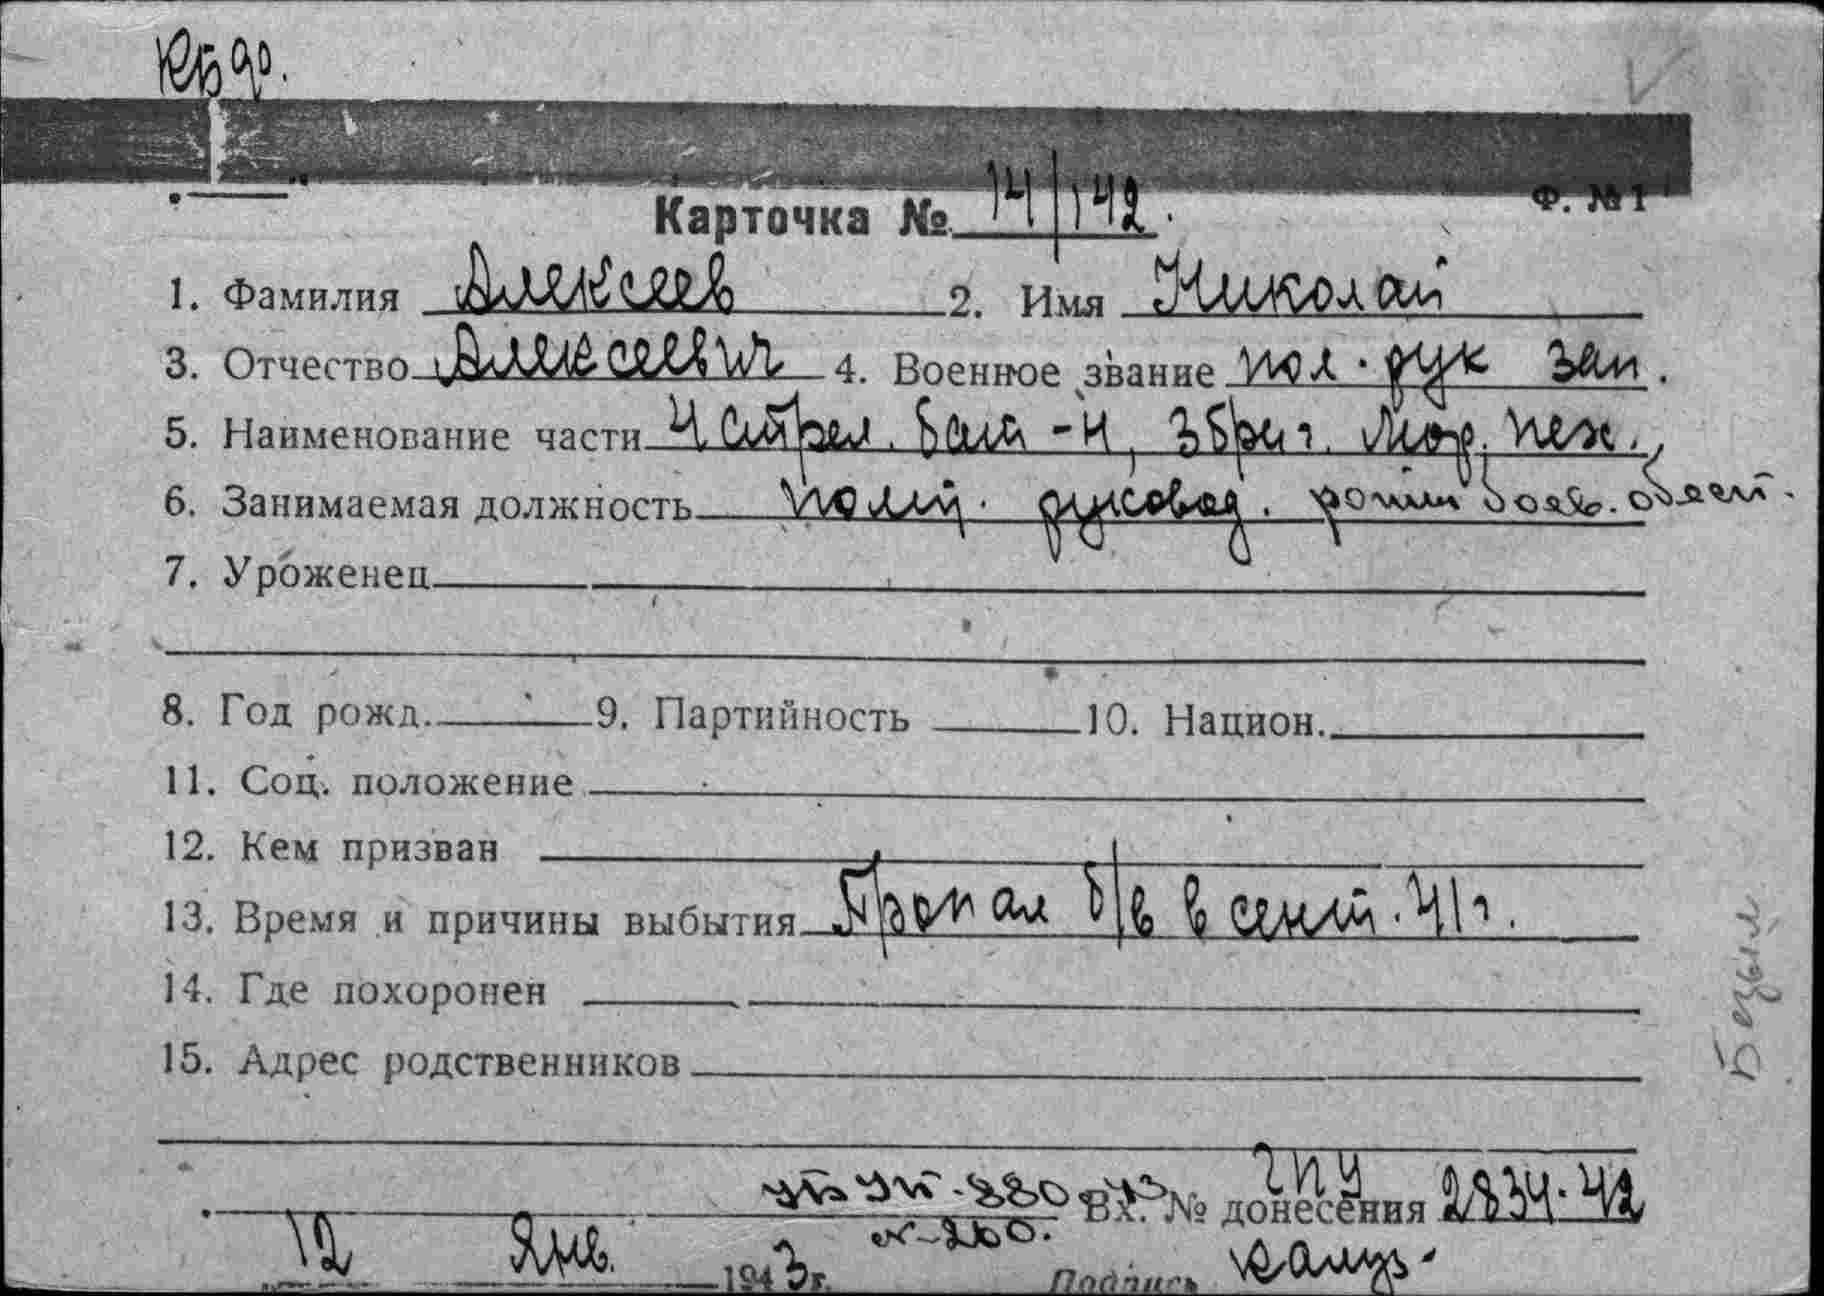 Ф. № 1
Карточка № 14/142.
1. Фамилия Алексеев 2. Имя Николай
3. Отчество Алексеевич 4. Военное звание пол. рук зап.
5. Наименование части 4 стрел. бат-н, 3 бриг. мор. пех.,
6. Занимаемая должность полит. руковод. роты
7. Уроженец
8. Год рожд. 9. Партийность 10. Национ.
11. Соц. положение
12. Кем призван
13. Время и причины выбытия Пропал б/в в сент. 41 г.
14. Где похоронен
15. Адрес родственников
ГПУ
Вх. № донесения 2834-42
12 Янв. 1943 г. Подпись